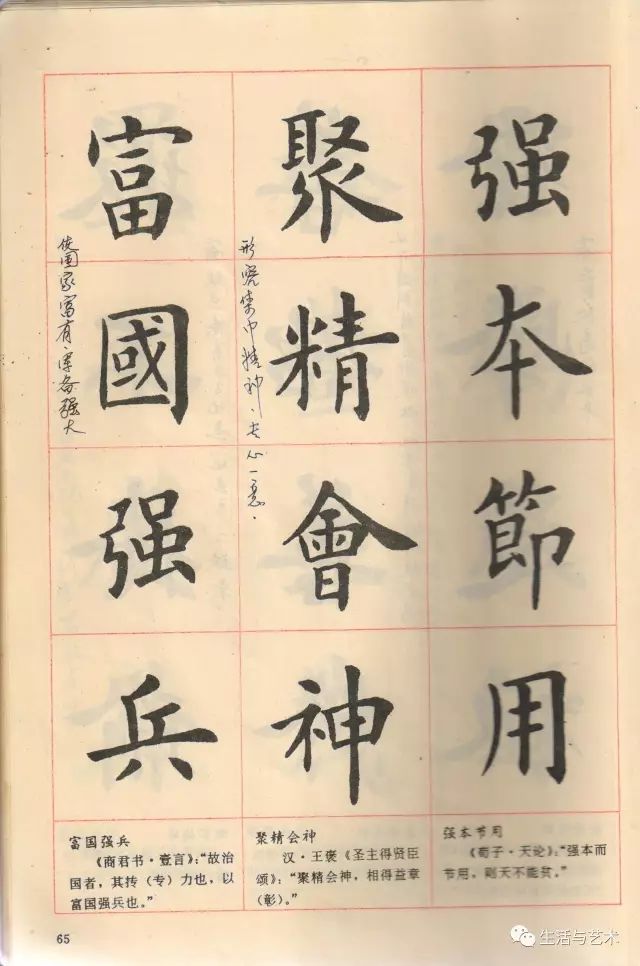 强本節用
聚精會神
形容集中精神，专心一意。
富國强兵
使国家富有，军备强大
强本节用
《荀子·天论》：“强本而
节用，则天不能贫。”
聚精会神
汉·王褒《圣主得贤臣
颂》：“聚精会神，相得益章
（彰）。”
富国强兵
《商君书·壹言》：“故治
国者，其抟（专）力也，以
富国强兵也。”
65
生活与艺术